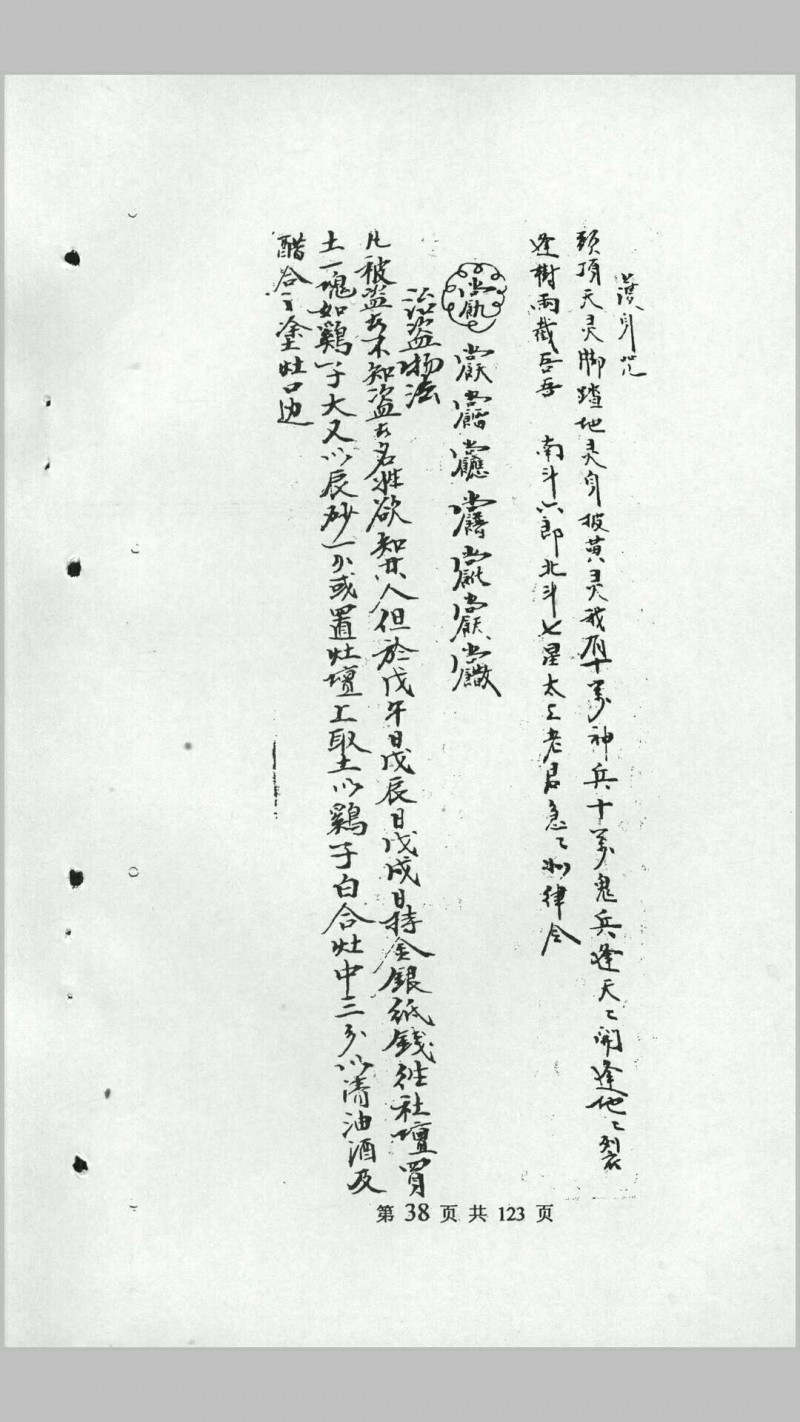 護身咒
頭頂天灵脚踏地灵身披黃灵我有十萬神兵十萬鬼兵逢天〻開逢地〻裂
逢樹兩截吾奉 南斗六郎北斗七星太上老君急〻如律令
治盜物法
凡被盜去不知盜去名姓欲知其人但於戊午日戊辰日戊戌日持金銀紙錢往社壇買
土一塊如鷄子大又以辰砂一分或置灶壇上取土以鷄子白合灶中三分以清油酒及
醋合了塗灶口边
第 38 页 共 123 页